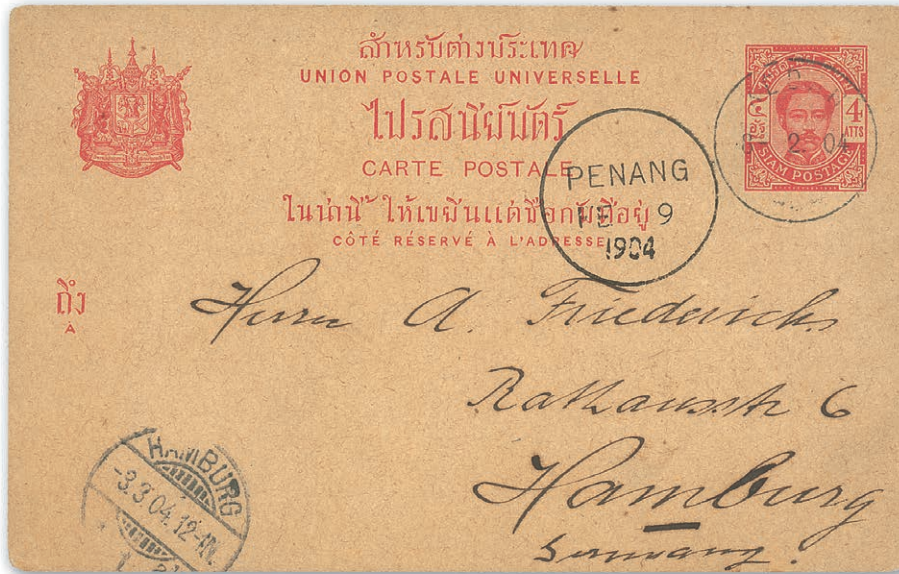 สำหรับต่างประเทศ
UNION POSTALE UNIVERSELLE
ไปรสนียบัตร์
CARTE POSTALE
ในน่านี้ ให้เขียนแต่ชื่อกับที่อยู่
CÔTÉ RÉSERVÉ À L'ADRESSE
4
ATTS
SIAM POSTAGE
8 2 04
PENANG
FE 9
1904
ถึง
À
Herrn A. Friederichs
Rathausstr 6
Hamburg
Germany.
HAMBURG
-3.3.04.12-1N.
1